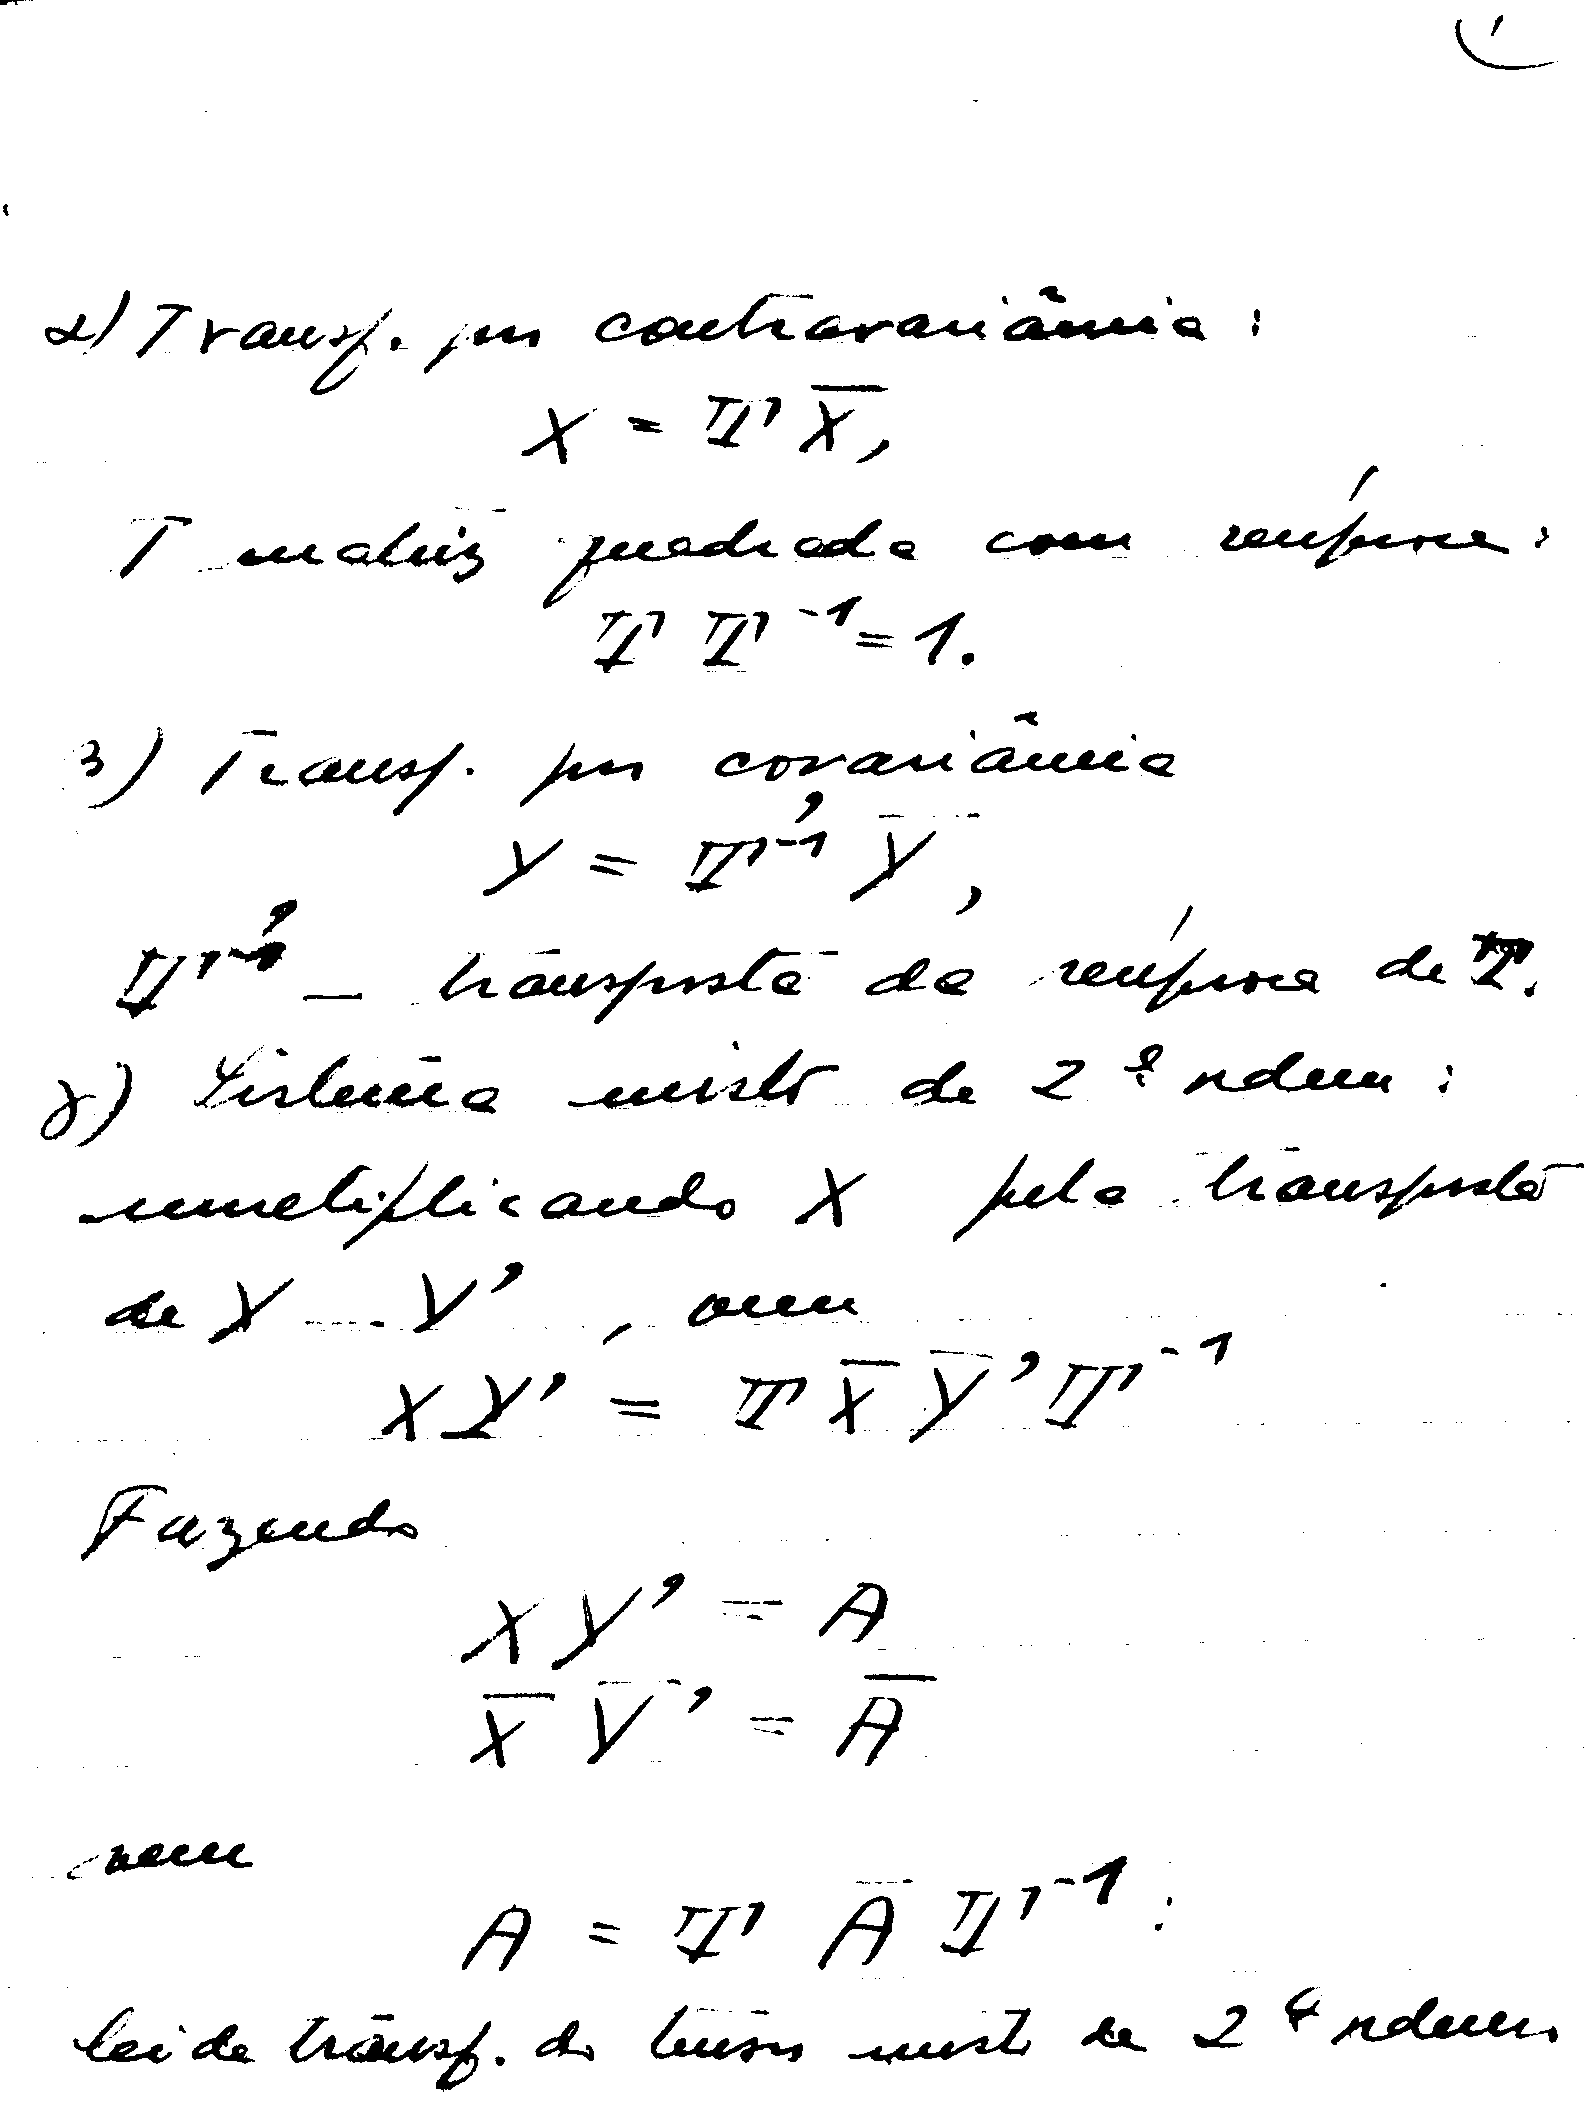 α) Transf. por contravariância:
X = T X̅,
T matriz quadrada com recíproca:
T T⁻¹ = 1.
β) Transf. por covariância
Y = T⁻¹′ Y̅,
T⁻¹′ — transposta da recíproca de T.
γ) Sistema misto de 2ª ordem:
multiplicando X pela transposta
de Y — Y′, vem
X Y′ = T X̅ Y̅′ T⁻¹
Fazendo
X Y′ = A
X̅ Y̅′ = A̅
vem
A = T A̅ T⁻¹:
lei de transf. do tensor misto de 2ª ordem.